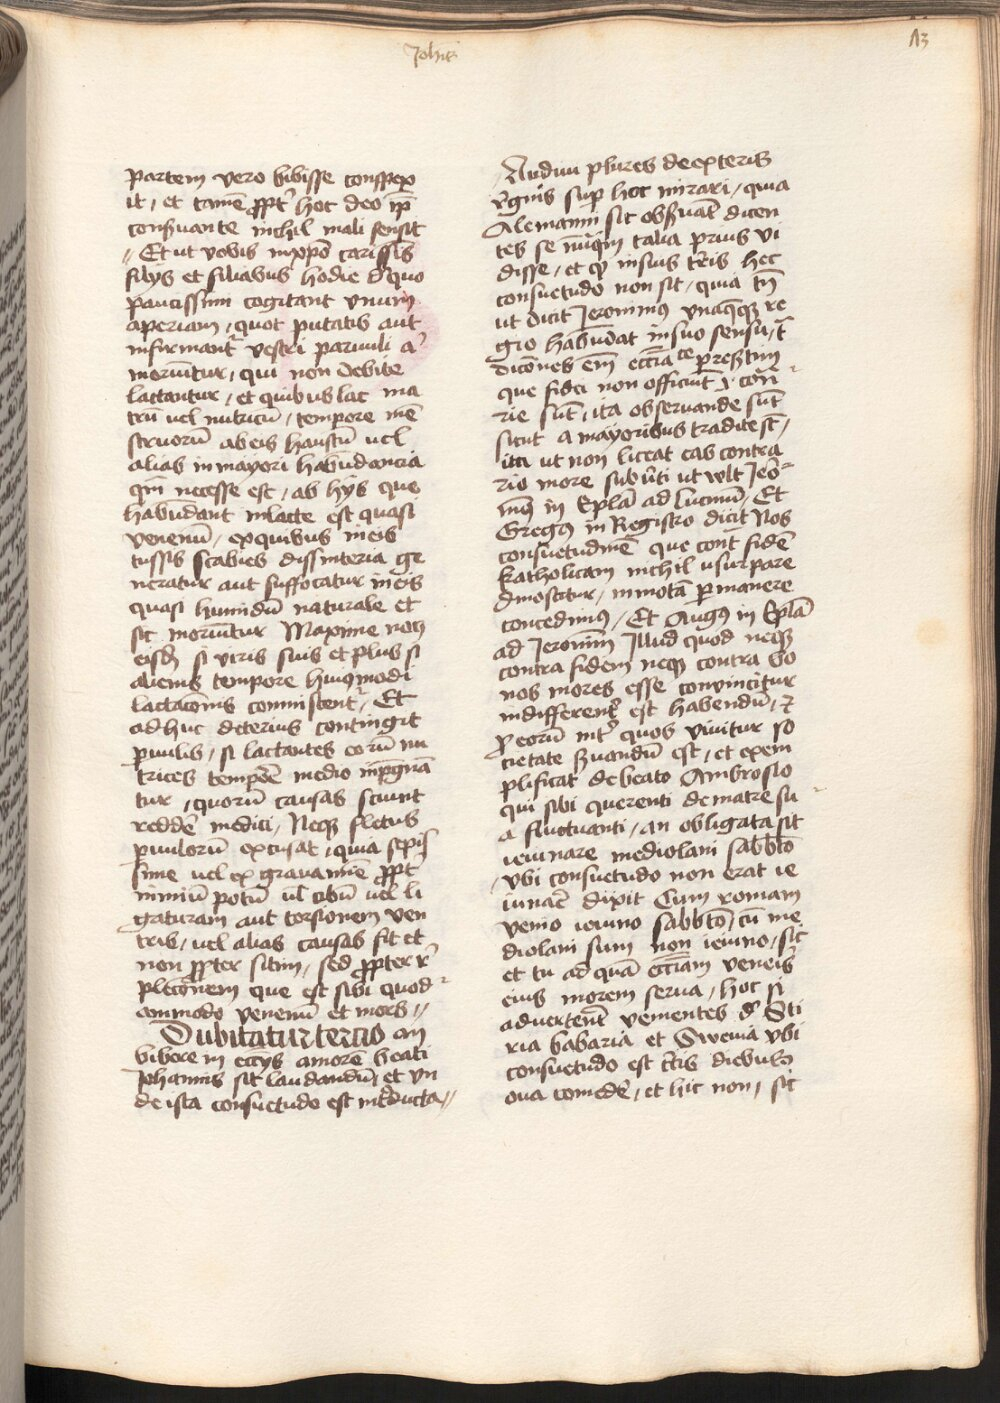 Johis
13
partem vero bibisse conspex
it / et tamē ꝓpt᷑ hoc deo ip̄
cōsuante nichil mali sensit
// Et ut vobis in xpō carissīs
filijs et filiabus hodie de quo
paucissimi cogitant vnum
aperiam / quot putatis aut
infirmant᷑ vestri paruuli aꝰ
moriūtur / qui non debite
lactantur / et quibus lac ma
trū uel nutricū / tempore mē
struorū ab eis haustū uel
alias in mayori habūdancia
qm̄ necesse est / ab hijs que
habūdant in lacte est quasi
venenū / ex quibus in eis
tussis scabies dissinteria ge
neratur aut suffocatur in eis
quasi humidū naturale et
sic moriūtur Maxime
si viris suis et plus si
alienis tempore huiꝰmodi
lactacōnis commiscent᷑ / Et
adhuc deterius contingit
ꝑuulis / si lactantes eorū nu
trices tempōre medio inp̄gnā
tur / quorū causas sciunt
reddē medici / Neqꝫ fletus
ꝑuulorū excusat / quia sepis
sime uel ex grauamīe ꝓpt
nimiū potū ul̄ cibū uel li
gaturam aut torsionem ven
tris / uel alias causas fit et
non ꝓpter sitim / sed ꝓpter r᷑
plecōnem que est sibi quod
ammodo venenū et mors //
Dubitatur tercio an
bibere in ecc̄ijs amore beati
Johannis sit laudandū / et vn
de ista consuetudo est int᷑ducta //
Audiui plures de exteris
r᷑gnis sup̄ hoc mirari / quia
Alemanni sic obsuāt dicen
tes se nūqm̄ talia prius vi
disse / et qꝫ in suis t᷑ris hec
consuetudo non sit / quia tn̄
ut dicit Jeronimus vnaqꝫqꝫ re
gio habūdat in suo sensu /
dicōnes em̄ ecc̄iatꝭce p̄resztim
que fidei non officiūt
rie sūt / ita obseruande sūt
sicut a mayoribus tradite st̄ /
ita ut non liceat eas contra
rio more subūti ut wlt Jeo
nīꝰ in Ep̄lā ad Lucinū / Et
Gregꝰ in Registro dicit Nos
consuetudinē que cont̄ fidē
katholicam nichil vsurpare
dinoscitur / inmotā ꝑmanere
concedimꝰ / Et Augꝰ in Ep̄lā
ad Jeronim̄ Illud quod neqꝫ
contra fidem neqꝫ contra bo
nos mores esse conuincitur
indifferent᷑ est habendū / ⁊
ꝓ eorū int᷑ quos viuitur so
cietate s᷑uandū est / et exem
plificat de beato Ambrosio
qui sibi querenti de matre su
a fluctuanti / an obligata sit
ieiunare mediolani sabb̄to
/ vbi consuetudo non erat ie
iunaē dixit Cum romam
venio ieiuno sabb̄to / cū me
diolani sum non ieiuno / sic
et tu ad quā ecc̄iam veneris
eius morem serua / hoc si
aduertēt venientes de Sti
ria babaria et Sweuia vbi
consuetudo est c᷑tis diebus
oua comedē / et hic non / sic